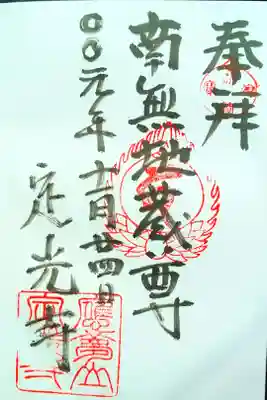 奉拝
南無地蔵尊
〇〇元年十一月廿四日
定光寺